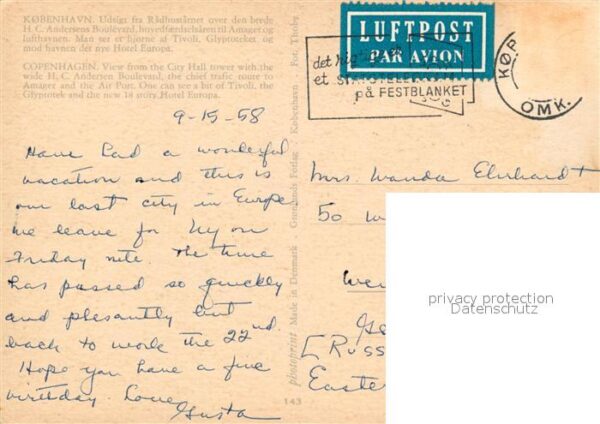 KØBENHAVN. Udsigt fra Rådhustårnet over den brede
H. C. Andersens Boulevard, hovedfærdselsåren til Amager og
lufthavnen. Man ser et hjørne af Tivoli, Glyptoteket og
mod havnen det nye Hotel Europa.
COPENHAGEN. View from the City Hall tower with the
wide H. C. Andersen Boulevard, the chief trafic route to
Amager and the Air Port. One can see a bit of Tivoli, the
Glyptotek and the new 18 story Hotel Europa.
9-15-58
Have had a wonderful
vacation and this is
our last city in Europe
we leave for Ny on
Friday nite. The time
has passed so quickly
and plesantly but
back to work the 22nd.
Hope you have a fine
birthday. Love
Gusta
photoprint Made in Denmark Grønlunds Forlag København Foto
143
LUFTPOST
PAR AVION
det rigtige
et
på FESTBLANKET
KØP
OMK.
Mrs. Wanda Ehrhardt
50 W
Eastern
privacy protection
Datenschutz